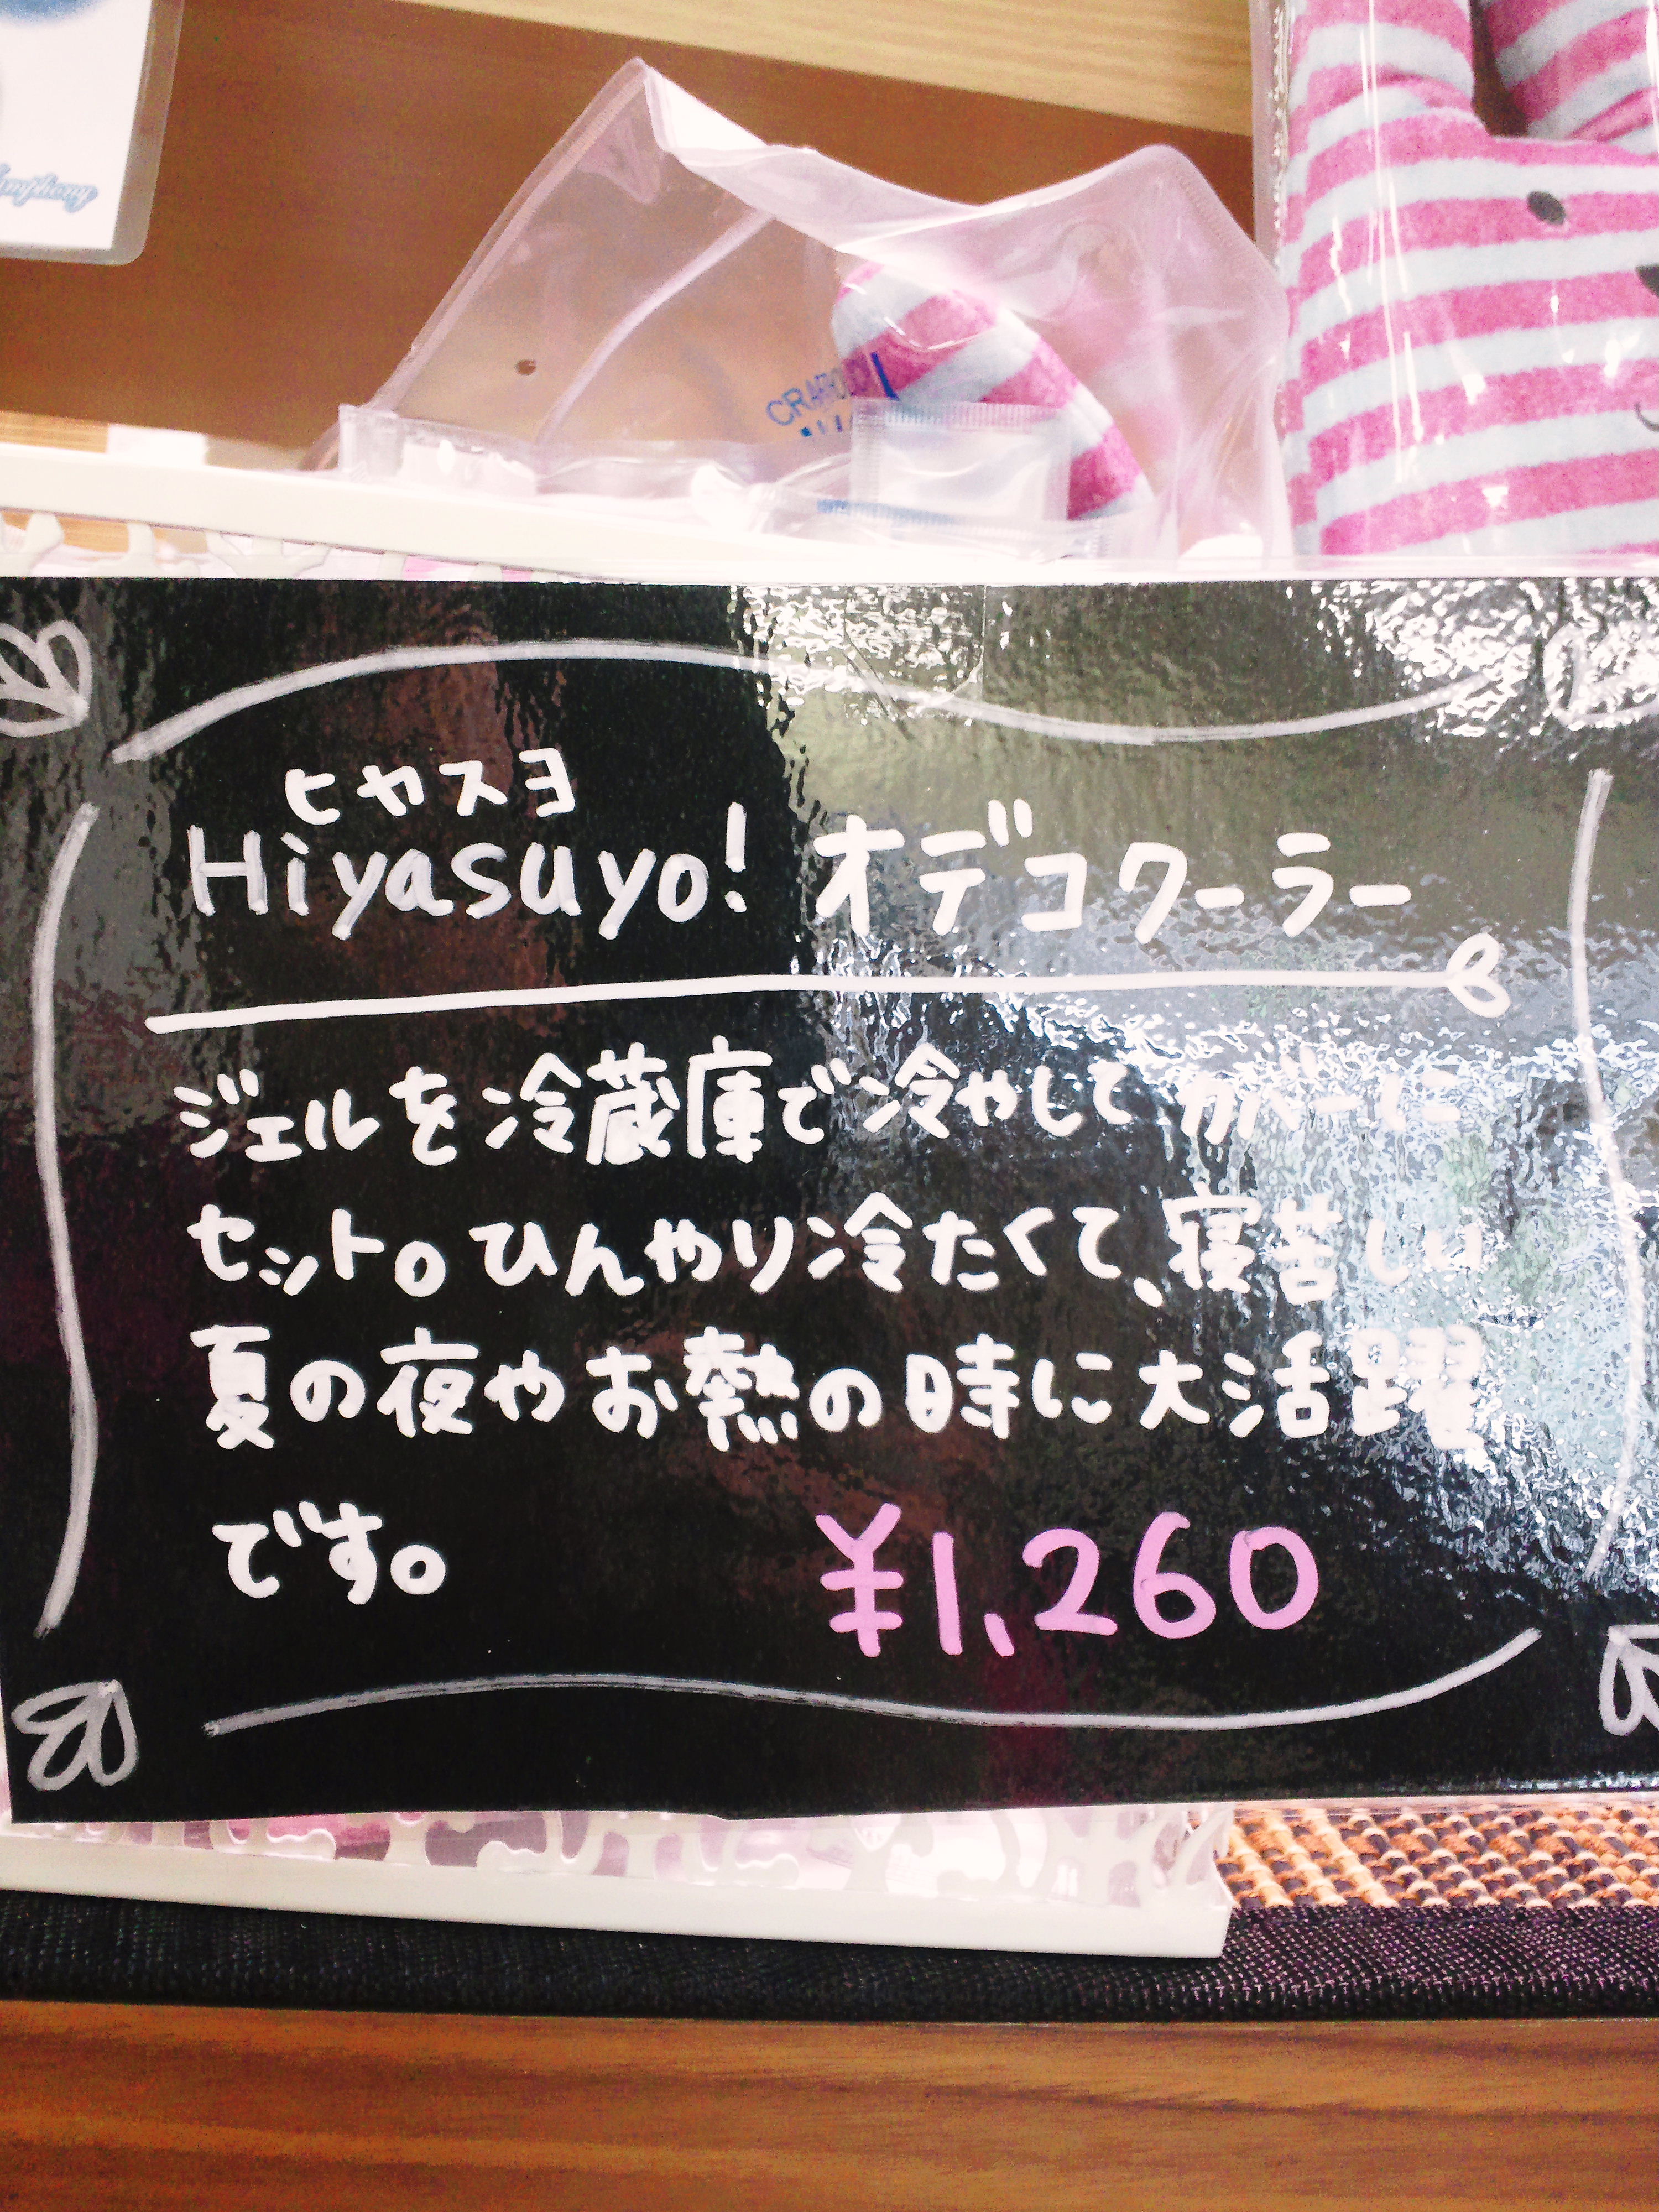 ymphony
CRAFTHOLIC
ヒヤスヨ
Hiyasuyo! オデコクーラー
ジェルを冷蔵庫で冷やしてカバーに
セット。ひんやり冷たくて、寝苦しい
夏の夜やお熱の時に大活躍
です。 ¥1,260